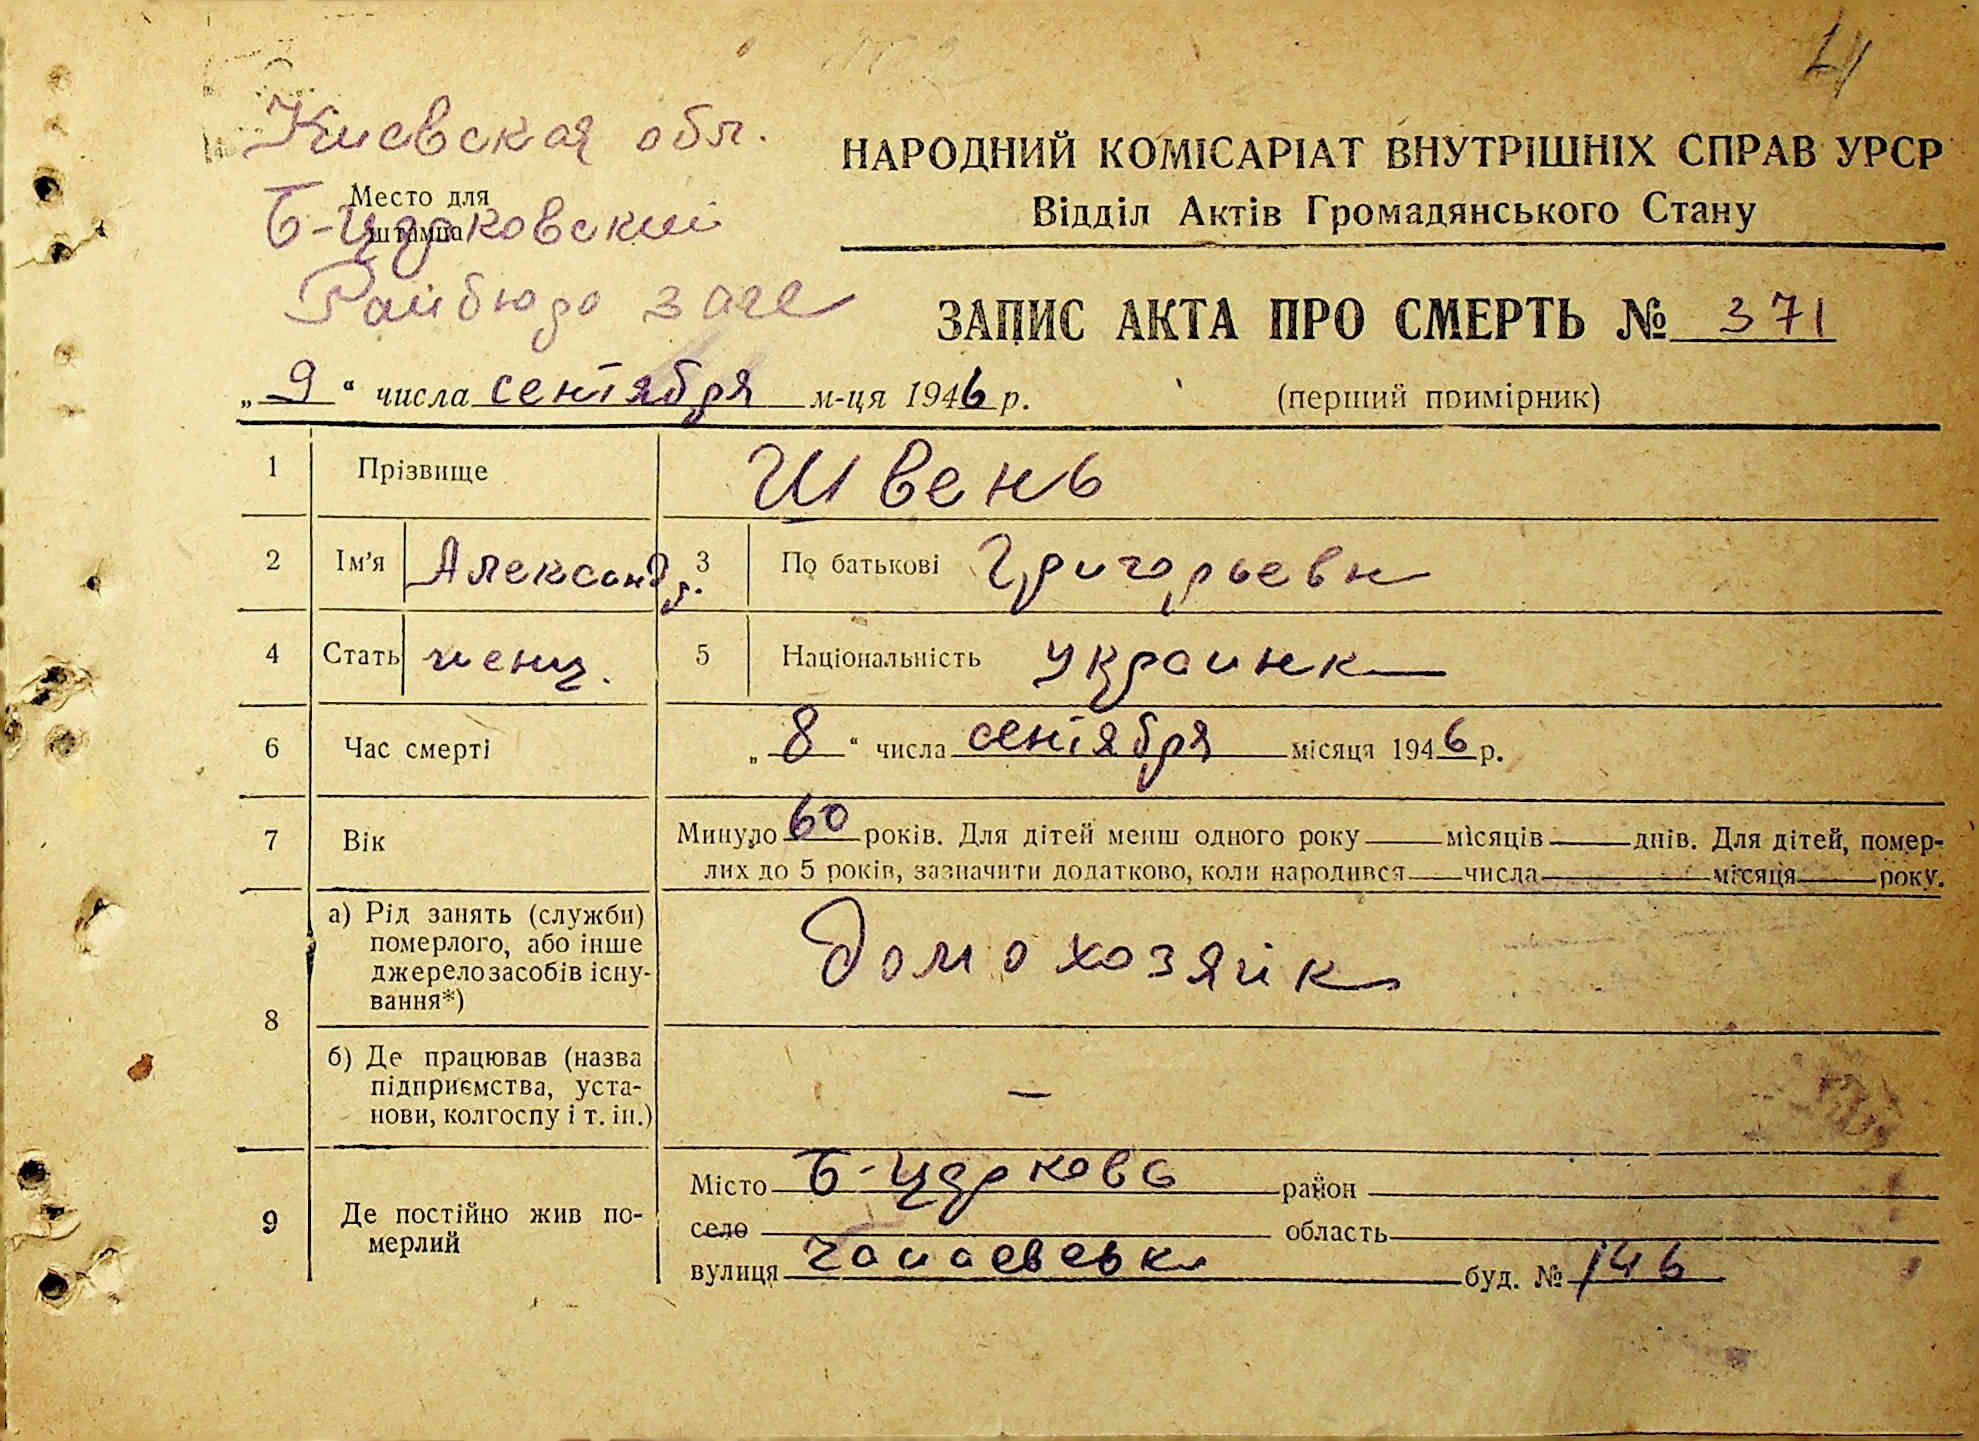 Киевская обл.
Место для
штампа
Б-Церковский
Райбюро загс
НАРОДНИЙ КОМІСАРІАТ ВНУТРІШНІХ СПРАВ УРСР
Відділ Актів Громадянського Стану
ЗАПИС АКТА ПРО СМЕРТЬ № 371
„9“ числа сентября м-ця 1946 р.
(перший примірник)
1 Прізвище Швень
2 Ім'я Александр. 3 По батькові Григорьевн
4 Стать женщ. 5 Національність украинк
6 Час смерті „8“ числа сентября місяця 1946 р.
7 Вік Минуло 60 років. Для дітей менш одного року місяців днів. Для дітей, помер-
лих до 5 років, зазначити додатково, коли народився числа місяця року.
8 а) Рід занять (служби)
померлого, або інше
джерело засобів існу-
вання*)
Домохозяйк
б) Де працював (назва
підприємства, уста-
нови, колгоспу і т. ін.)
—
9 Де постійно жив по-
мерлий
Місто Б-Церковь район
село область
вулиця Чапаевськ буд. № 146